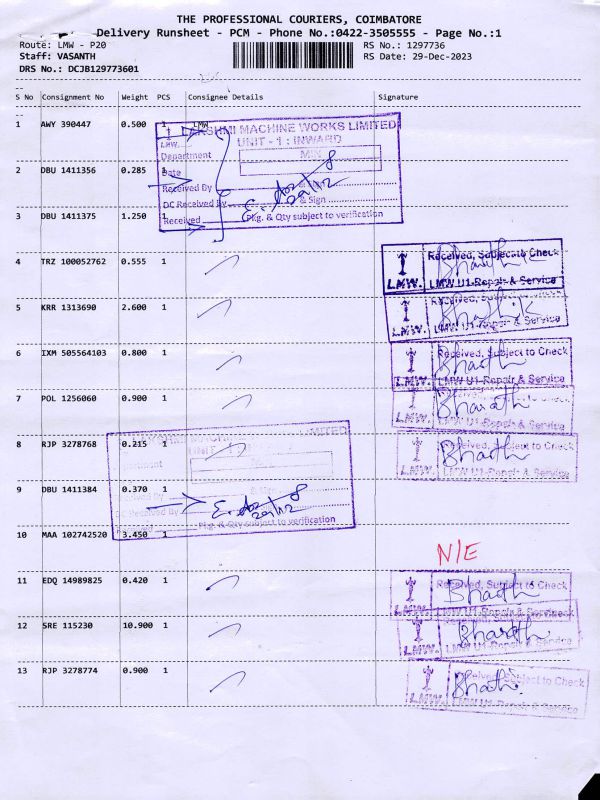 THE PROFESSIONAL COURIERS, COIMBATORE
Delivery Runsheet - PCM - Phone No.:0422-3505555 - Page No.:1
Route: LMW - P20 RS No.: 1297736
Staff: VASANTH RS Date: 29-Dec-2023
DRS No.: DCJB129773601
S No Consignment No Weight PCS Consignee Details Signature
1 AWY 390447 0.500 1 LMW
LAKSHMI MACHINE WORKS LIMITED
UNIT - 1 : INWARD
Department
2 DBU 1411356 0.285 1
Date
Received By & Sign
DC Received By & Sign
3 DBU 1411375 1.250 1
Received Pkg. & Qty subject to verification
4 TRZ 100052762 0.555 1
LMW. LMW U1-Repair & Service
5 KRR 1313690 2.600 1
LMW. LMW U1-Repair & Service
6 IXM 505564103 0.800 1
Received, Subject to Check
LMW. LMW U1-Repair & Service
7 POL 1256060 0.900 1
Bharath
LMW. LMW U1-Repair & Service
8 RJP 3278768 0.215 1
Received, Subject to Check
LMW. LMW U1-Repair & Service
9 DBU 1411384 0.370 1
DC Received By
Pkg. & Qty subject to verification
10 MAA 102742520 3.450 1
N/E
11 EDQ 14989825 0.420 1
Received, Subject to Check
LMW. LMW U1-Repair & Service
12 SRE 115230 10.900 1
Bharath
LMW. LMW U1-Repair & Service
13 RJP 3278774 0.900 1
Received, Subject to Check
LMW. LMW U1-Repair & Service